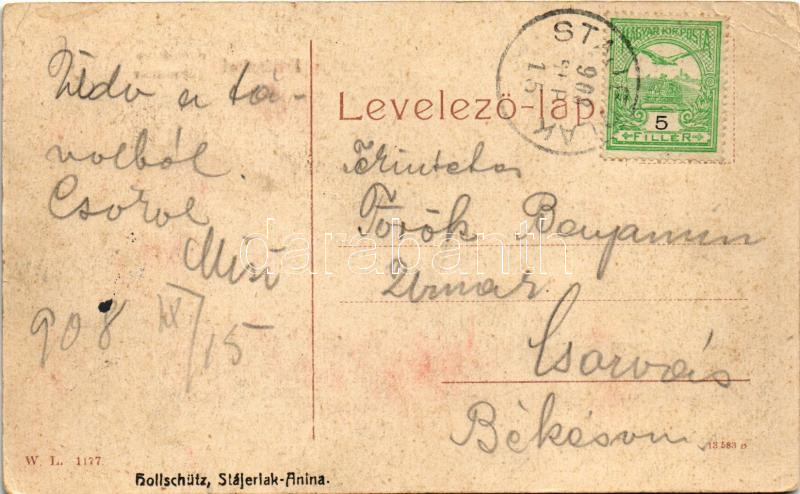 Üdv a tá-
volból.
Csókol
Misi
908 IX/15
Levelező-lap.
Tekintetes
Török Benjamin
Urnak
Csorvás
Békésvm.
MAGYAR KIR. POSTA
5
FILLÉR
908
15
W. L. 1177
13583
Hollschütz, Stájerlak-Anina.
darabanth